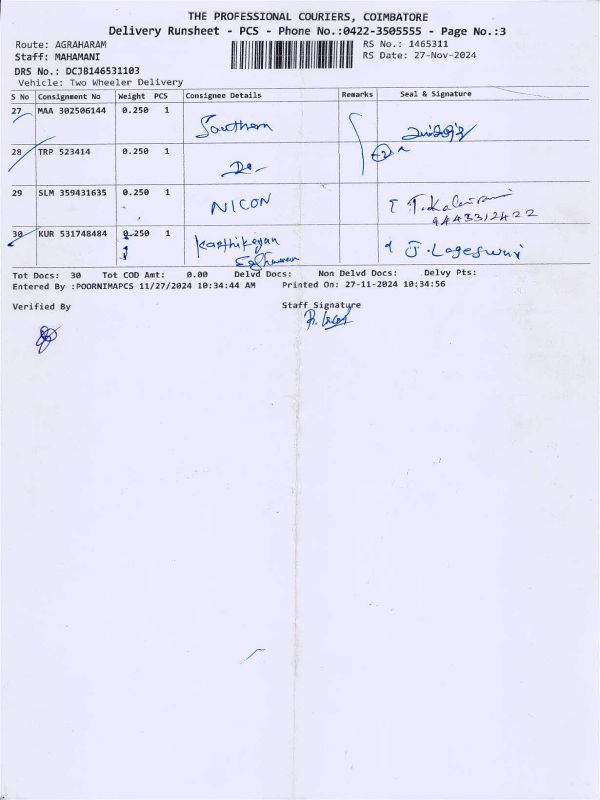 THE PROFESSIONAL COURIERS, COIMBATORE
Delivery Runsheet - PCS - Phone No.:0422-3505555 - Page No.:3
Route: AGRAHARAM
RS No.: 1465311
Staff: MAHAMANI
RS Date: 27-Nov-2024
DRS No.: DCJB146531103
Vehicle: Two Wheeler Delivery
S No Consignment No Weight PCS Consignee Details Remarks Seal & Signature
27 MAA 302506144 0.250 1 Southern
28 TRP 523414 0.250 1 Do-
29 SLM 359431635 0.250 1 NICON T.Kaleswari
9443312422
30 KUR 531748484 0.250 1 Karthikeyan J.Lageswari
Tot Docs: 30 Tot COD Amt: 0.00 Delvd Docs: Non Delvd Docs: Delvy Pts:
Entered By :POORNIMAPCS 11/27/2024 10:34:44 AM Printed On: 27-11-2024 10:34:56
Verified By Staff Signature